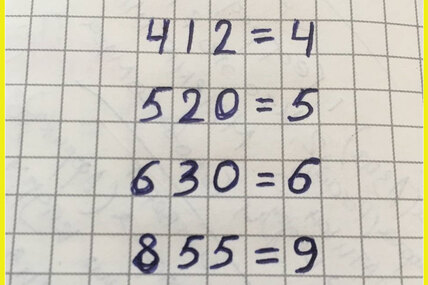 412=4
520=5
630=6
855=9